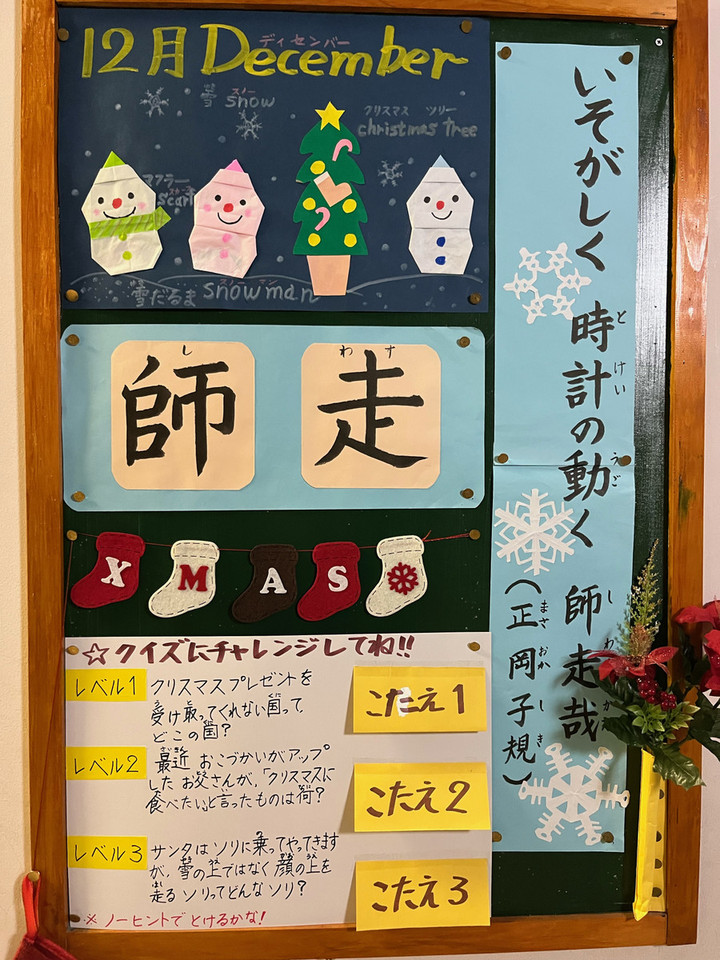 ディセンバー
12月December
スノー
雪 snow
クリスマス ツリー
christmas tree
マフラー
スカーフ
scarf
スノーマン
雪だるま snowman
し わす
師走
XMAS
☆クイズにチャレンジしてね!!
レベル1
クリスマスプレゼントを
受け取ってくれない国って、
どこの国?
こたえ1
レベル2
最近 おこづかいがアップ
した お父さんが、「クリスマスに
食べたい」と言ったものは何?
こたえ2
レベル3
サンタは ソリに乗ってやってきます
が、雪の上ではなく 顔の上を
走る ソリってどんな ソリ?
こたえ3
※ ノーヒントで とけるかな!
いそがしく 時計の動く 師走哉
とけい うご しわすかな
(正岡子規)
まさおかしき